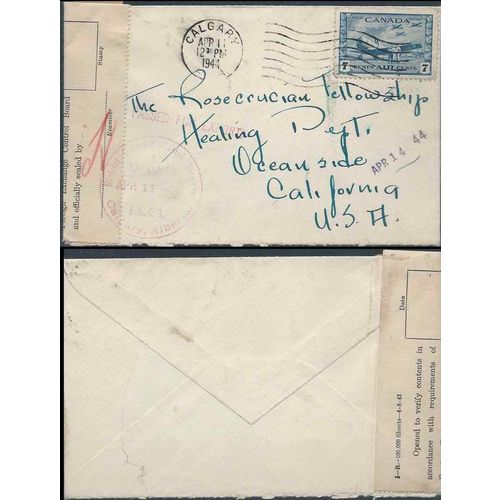 CALGARY
APR 11
12 PM
1944
CANADA
7 CENTS AIR CENTS 7
The Rosecrucian Fellowship
Healing Dept.
Oceanside
California
U.S.A.
APR 14 44
PASSED FOR EXPORT
APR 11
F.E.C.B.
Calgary, Alberta
Stamp
Examiner
Foreign Exchange Control Board
and officially sealed by
Date
I—B.—100,000 Sheets—4-8-43
Opened to verify contents in
accordance with requirements of